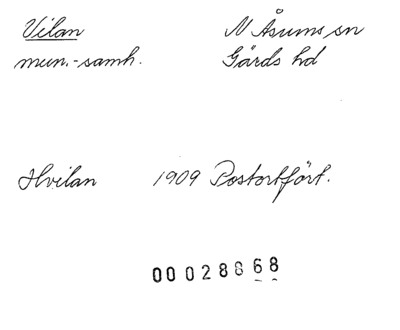 Vilan N Åsums sn
mun.-samh. Gärds hd
Hvilan 1909 Postortfört.
00028868